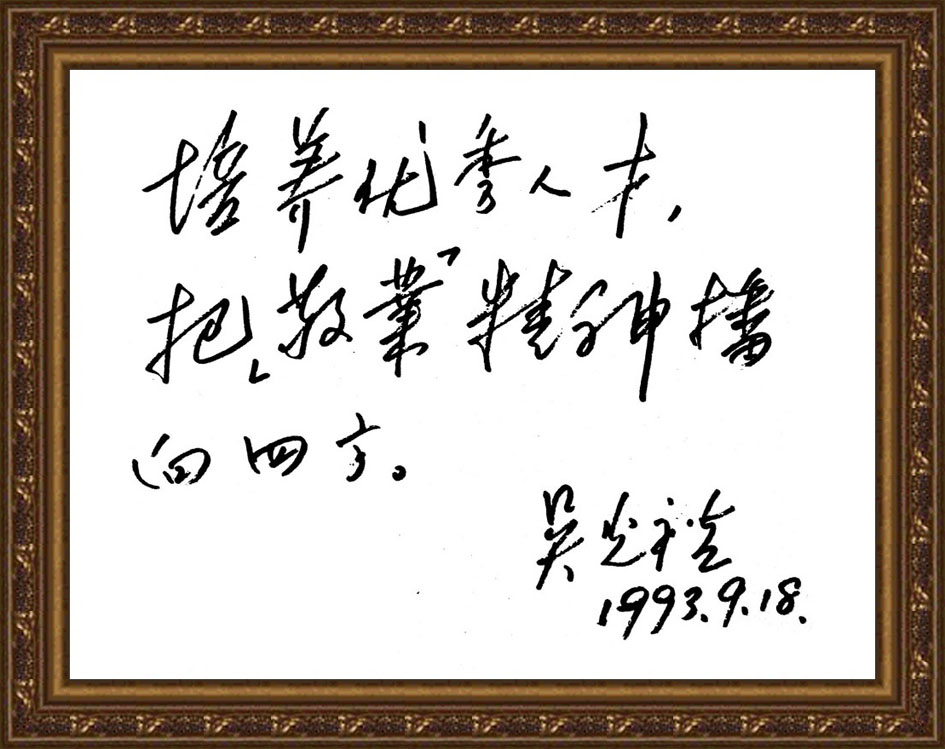 培养优秀人才，
把「敬業」精神播
向四方。
吴
1993.9.18.